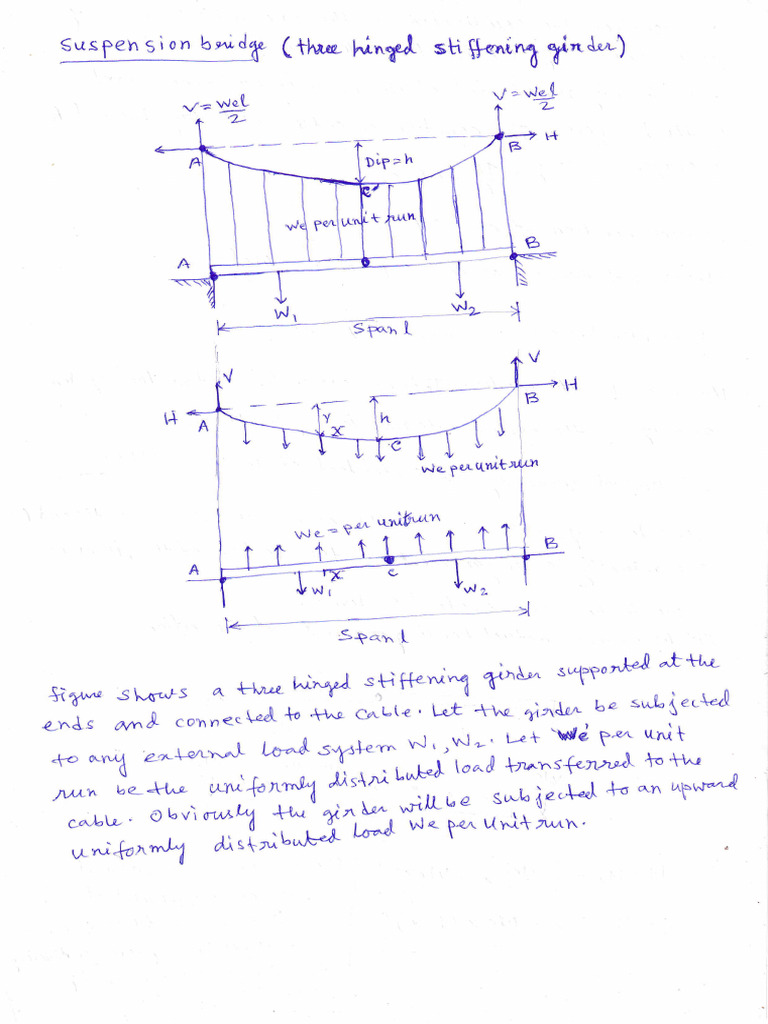 Suspension bridge (three hinged stiffening girder)
V = Wel/2
V = Wel/2
H
A
B
Dip = h
C
We per unit run
A
B
W1
W2
Span l
V
V
H
H
A
B
y
h
X
C
We per unit run
We = per unit run
A
B
W1
X
C
W2
Span l
figure shows a three hinged stiffening girder supported at the
ends and connected to the cable. Let the girder be subjected
to any external load system W1, W2. Let We per unit
run be the uniformly distributed load transferred to the
cable. Obviously the girder will be subjected to an upward
uniformly distributed load We per unit run.